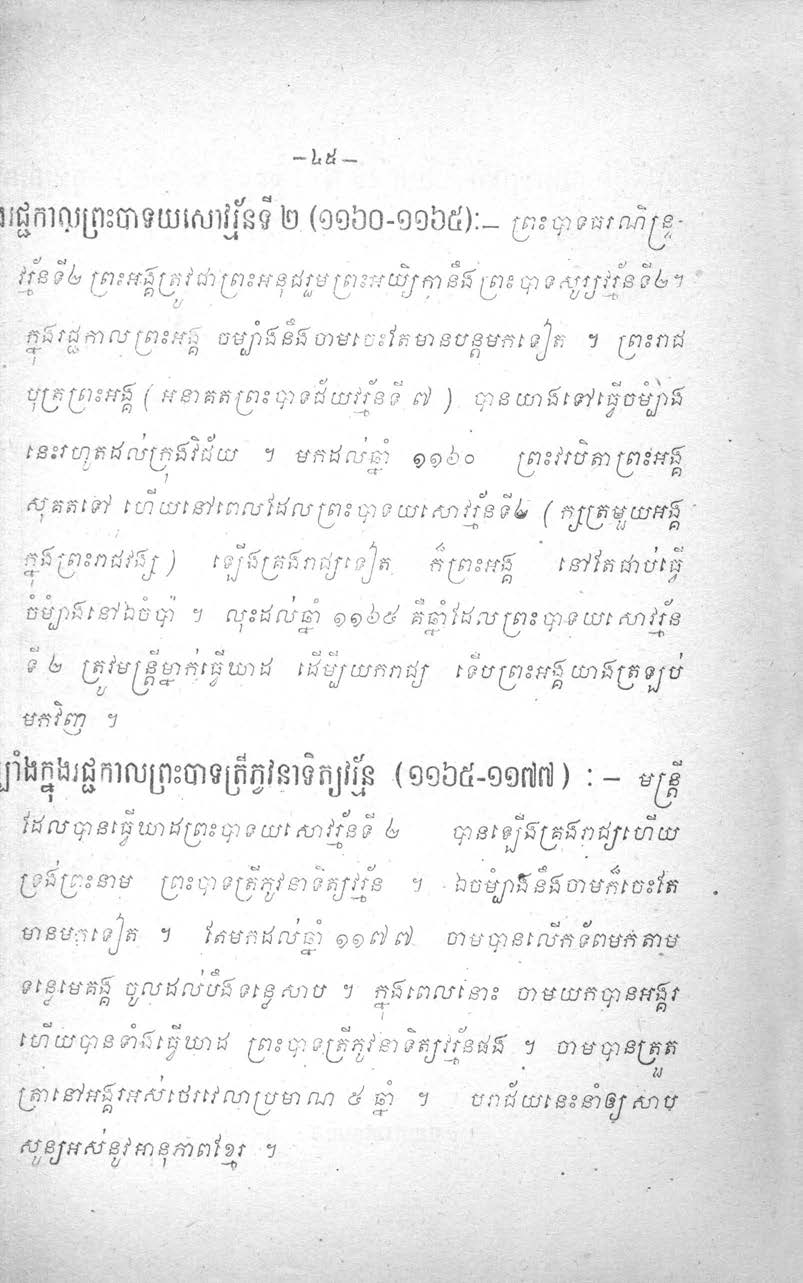 -៤៥-
រជ្ជកាលព្រះបាទយសោវរ្ម័នទី ២ (១១៦០-១១៦៥):- ព្រះបាទធរណិន្ទ្រ-
វរ្ម័នទី២ ព្រះអង្គត្រូវជាព្រះអនុជរួមព្រះអយ្យិកានឹងព្រះបាទសូរ្យវរ្ម័នទី២។
ក្នុងរជ្ជកាលព្រះអង្គ ចម្បាំងនឹងចាមចេះតែមានបន្តមកទៀត ។ ព្រះរាជ
បុត្រព្រះអង្គ (អនាគតព្រះបាទជ័យវរ្ម័នទី ៧) បានយាងទៅធ្វើចម្បាំង
នេះរហូតដល់ក្រុងវិជ័យ ។ មកដល់ឆ្នាំ ១១៦០ ព្រះវរបិតាព្រះអង្គ
សុគតទៅ ហើយនៅពេលដែលព្រះបាទយសោវរ្ម័នទី២ (ក្សត្រមួយអង្គ
ក្នុងព្រះរាជវង្ស) ឡើងគ្រងរាជ្យទៀត ក៏ព្រះអង្គ នៅតែជាប់ធ្វើ
ចំម្បាំងនៅឯចំប៉ា ។ លុះដល់ឆ្នាំ ១១៦៥ គឺឆ្នាំដែលព្រះបាទយសោវរ្ម័ន
ទី ២ ត្រូវមន្ត្រីម្នាក់ធ្វើឃាដ ដើម្បីយករាជ្យ ទើបព្រះអង្គយាងត្រឡប់
មកវិញ ។
ប្បាំងក្នុងរជ្ជកាលព្រះបាទត្រីភូវនាទិត្យវរ្ម័ន (១១៦៥-១១៧៧) : - មន្ត្រី
ដែលបានធ្វើឃាដព្រះបាទយសោវរ្ម័នទី ២ បានឡើងគ្រងរាជ្យហើយ
ទ្រង់ព្រះនាម ព្រះបាទត្រីភូវនាទិត្យវរ្ម័ន ។ ឯចម្បាំងនឹងចាមក៏ចេះតែ
មានមកទៀត ។ តែមកដល់ឆ្នាំ ១១៧៧ ចាមបានលើកទ័ពមកតាម
ទន្លេមេគង្គ ចូលដល់បឹងទន្លេសាប ។ ក្នុងពេលនោះ ចាមយកបានអង្គរ
ហើយបានទាំងធ្វើឃាដ ព្រះបាទត្រីភូវនាទិត្យវរ្ម័នផង ។ ចាមបានត្រួត
ត្រានៅអង្គរអស់ថេរវេលាប្រមាណ ៥ ឆ្នាំ ។ បរាជ័យនេះនាំឲ្យសាប
សូន្យអស់នូវអានុភាពខ្មែរ ។